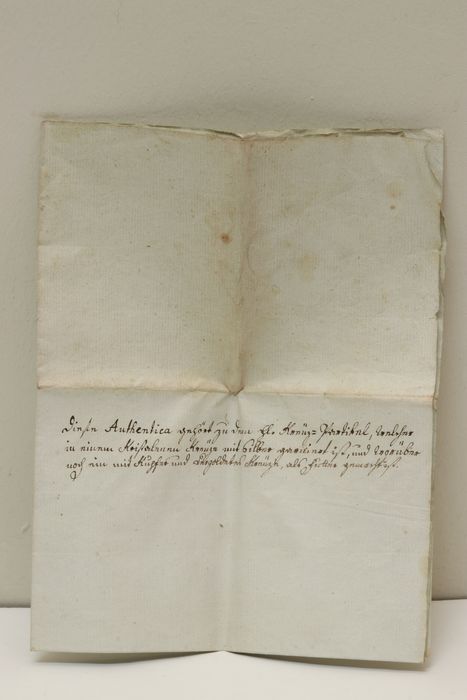 Diese Authentica gehört zu dem Hl. Kreuz=Partikul, welcher
in einem Kristallenen Kreuze mit Silber garniert ist, und worüber
noch ein mit Kupfer und Kreuzl, als gemacht ist.